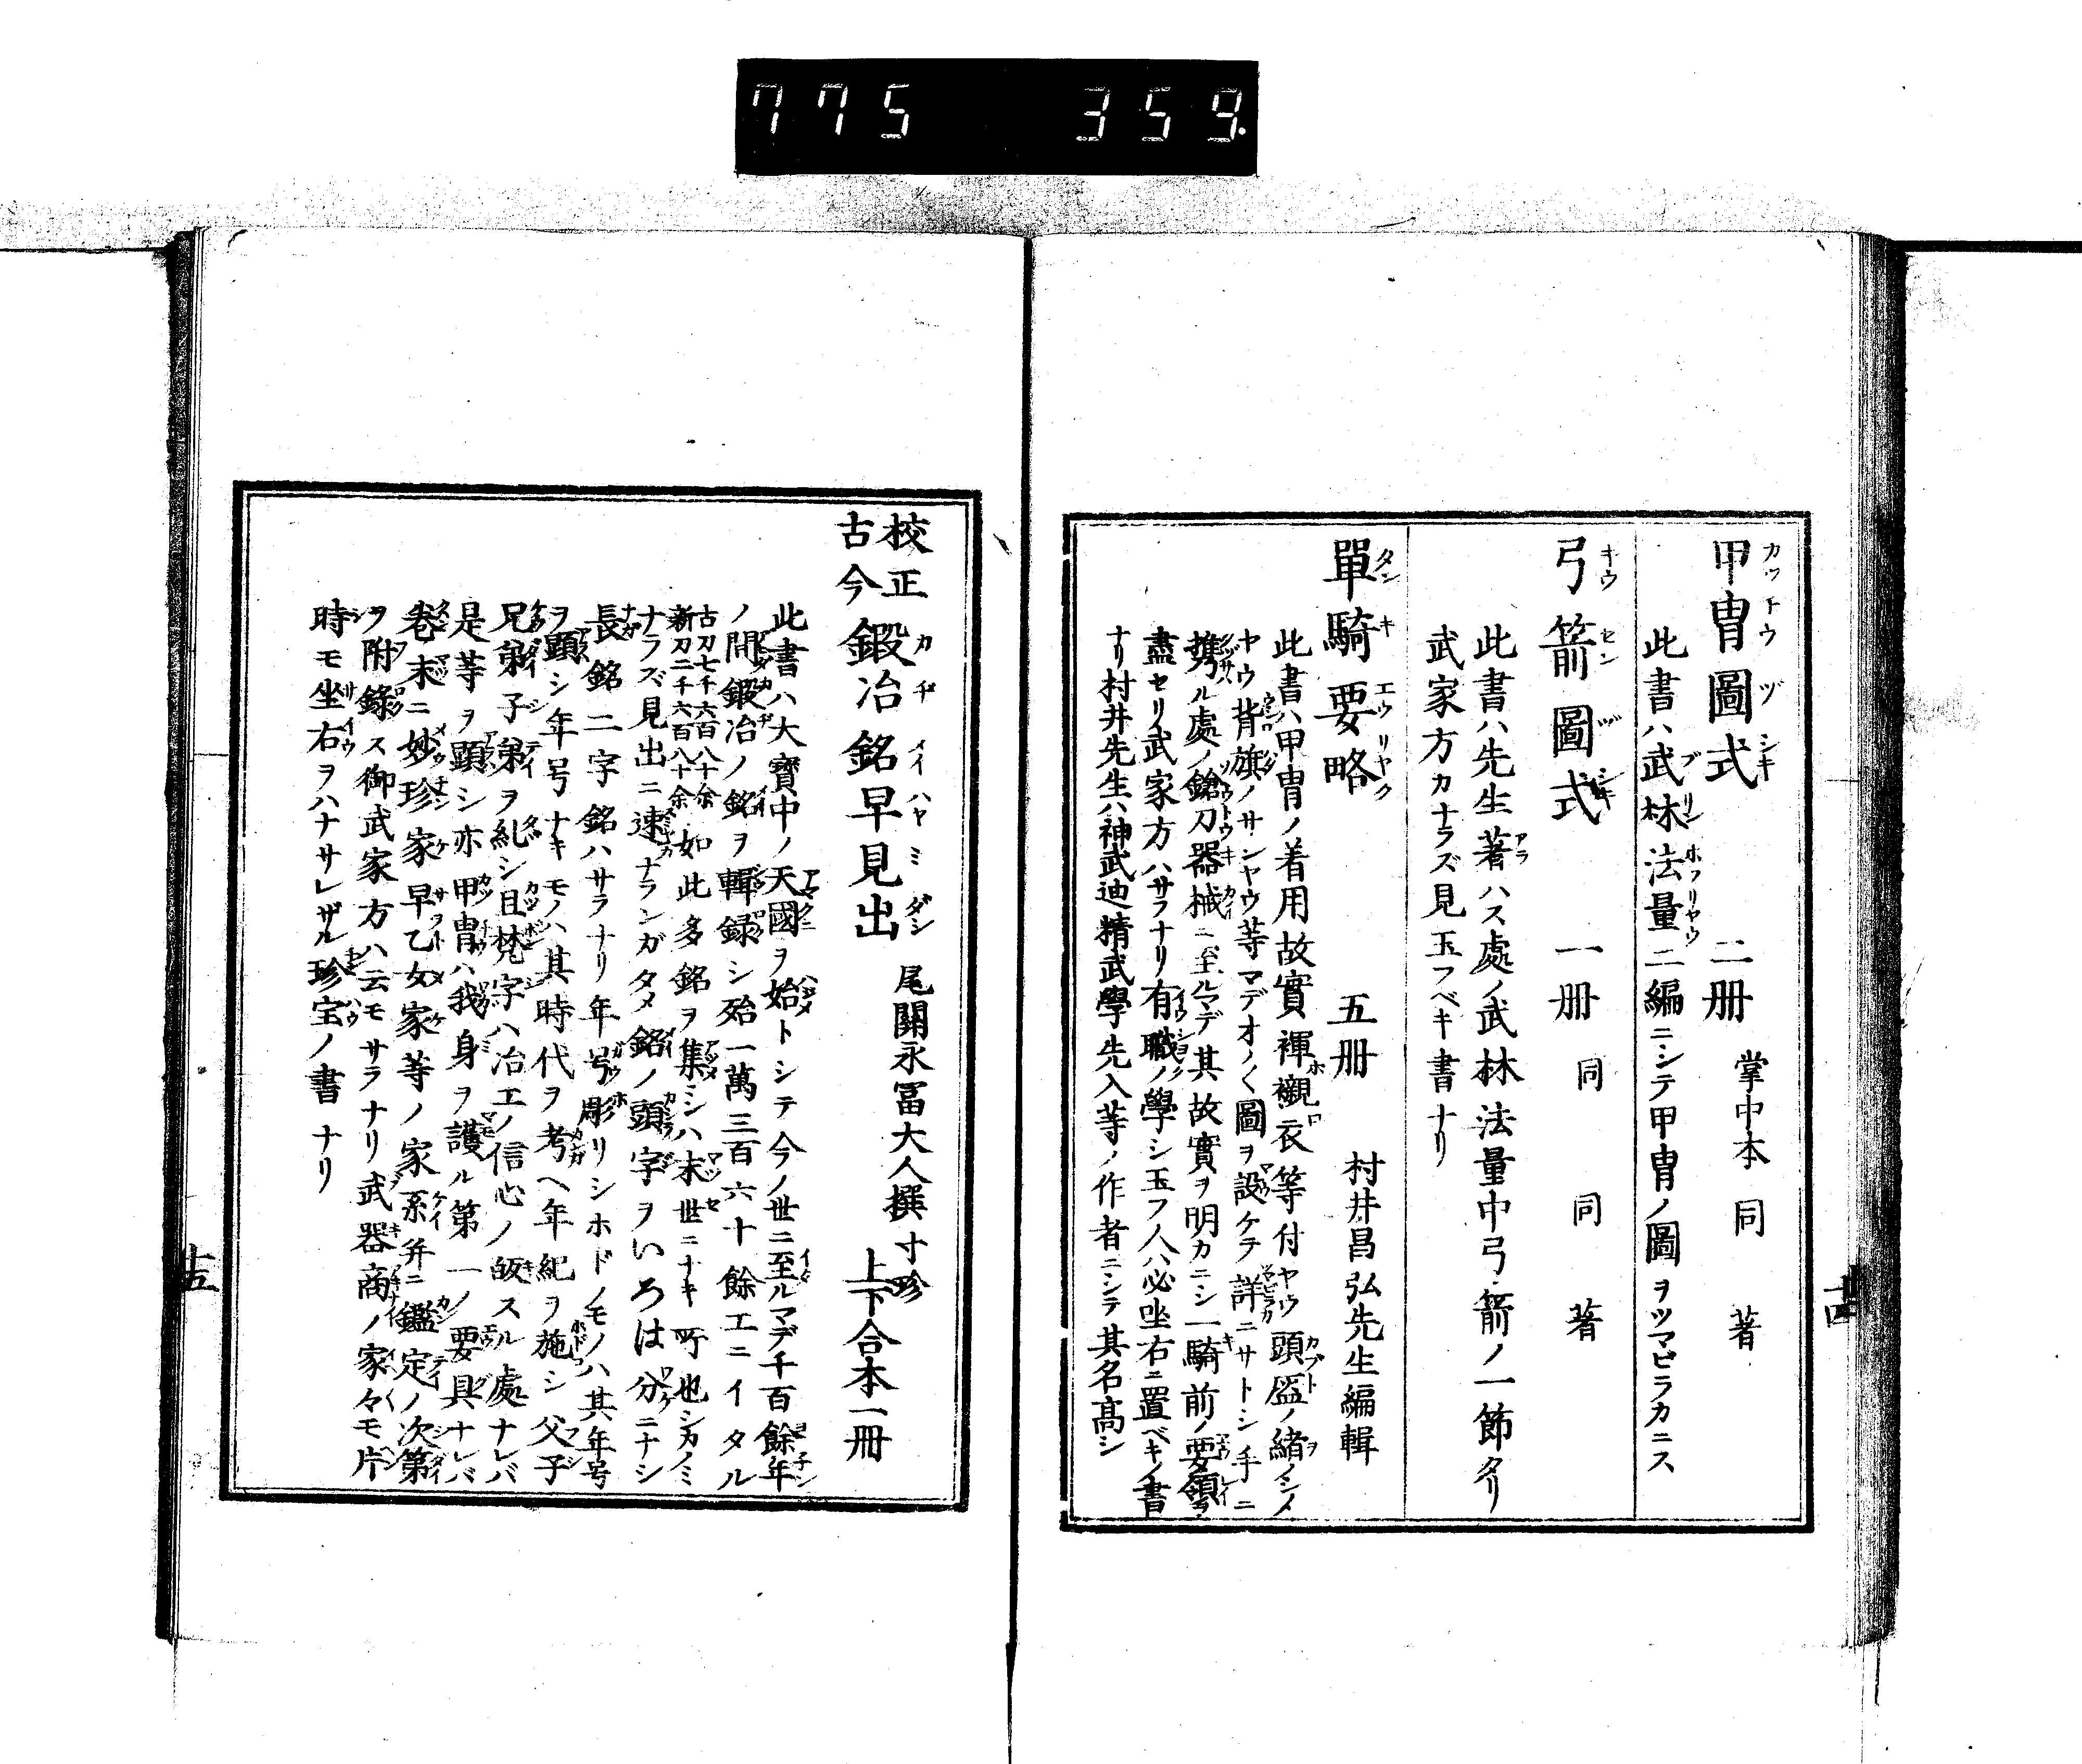 775 359.
甲冑圖式 二册 掌中本 同 著
此書ハ武林法量二編ニシテ甲冑ノ圖ヲツマビラカニス
弓箭圖式 一册 同 同 著
此書ハ先生著ハス處ノ武林法量中弓箭ノ一節タリ
武家方カナラズ見玉フベキ書ナリ
單騎要略 五册 村井昌弘先生編輯
此書ハ甲冑ノ着用故實褌襯衣等付ヤウ頭盔ノ緒ノシメ
ヤウ背旗ノサシヤウ等マデオノ〱圖ヲ設ケテ詳ニサトシ手ニ
携ル處ノ鎗刀器械ニ至ルマデ其故實ヲ明カニシ一騎前ノ要領ヲ
盡セリ武家方ハサラナリ有職ノ學シ玉フ人ハ必坐右ニ置ベキノ書
ナリ村井先生ハ神武迪精武學先入等ノ作者ニシテ其名高シ
十四
校正古今鍛冶銘早見出 尾關永冨大人撰 寸珍 上下合本一冊
此書ハ大寶中ノ天國ヲ始トシテ今ノ世ニ至ルマデ千百餘年
ノ間鍛冶ノ銘ヲ輯録シ殆一萬三百六十餘工ニイタル
古刀七千六百八十余 新刀二千六百八十余 如此多銘ヲ集ミシハ末世ニナキ所也シカノミ
ナラズ見出ニ速ナランガタメ銘ノ頭字ヲいろは分ニナシ
長銘二字銘ハサラナリ年号彫リシホドノモノハ其年号
ヲ顕シ年号ナキモノハ其時代ヲ考ヘ年紀ヲ施シ父子
兄弟子弟ヲ糺シ且梵字ハ冶工ノ信心ノ皈スル處ナレバ
是等ヲ顕シ亦甲冑ハ我身ヲ護ル第一ノ要具ナレバ
巻末ニ妙珍家早乙女家等ノ家系并ニ鑑定ノ次第
ヲ附錄ス御武家方ハ云モサラナリ武器商ノ家々モ片
時モ坐右ヲハナサレザル珍宝ノ書ナリ
十五